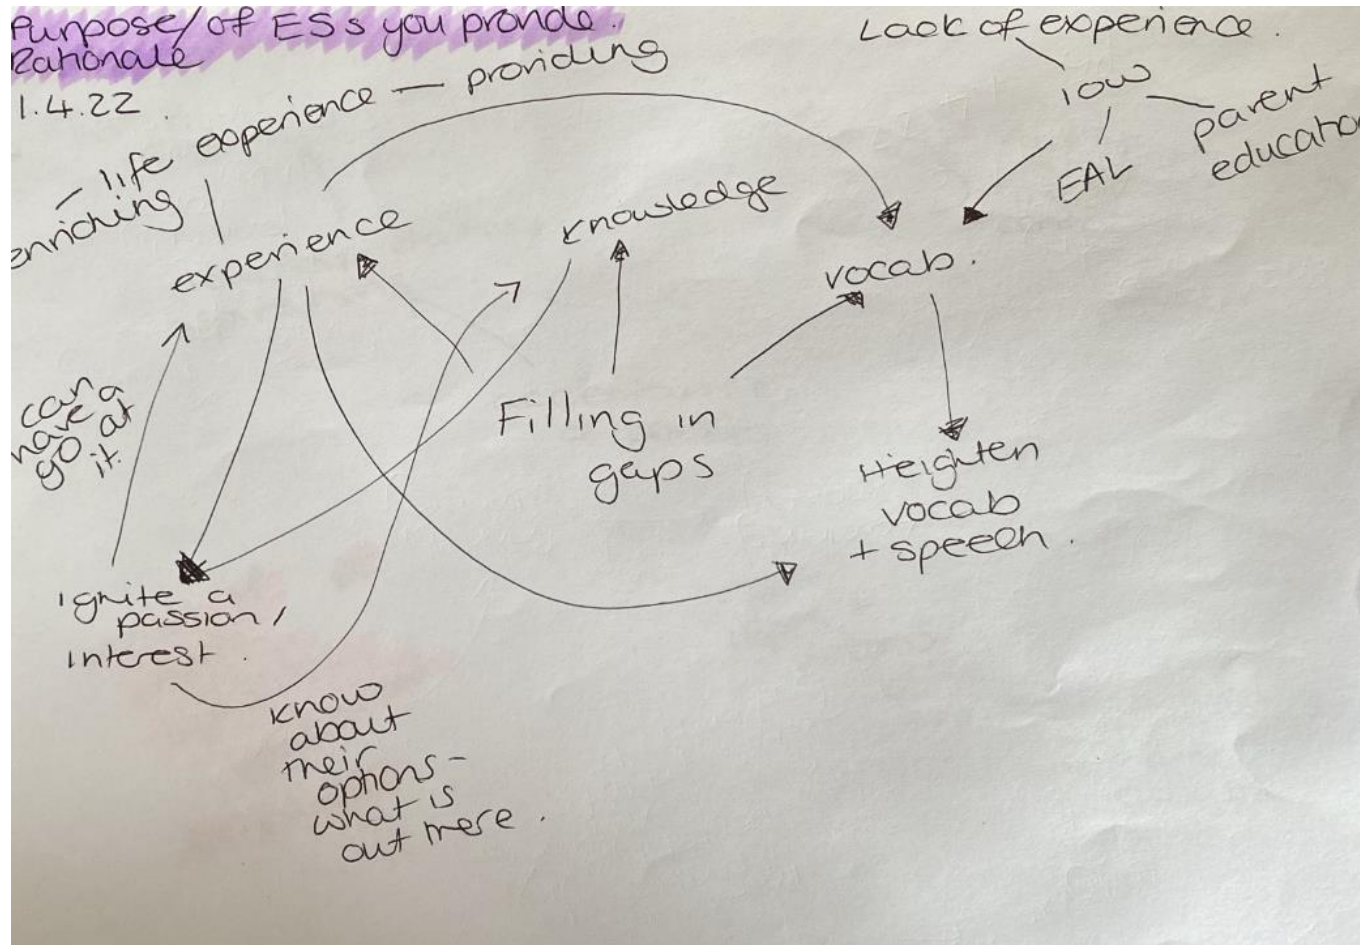 Purpose/ of ESs you provide.
Rationale
1.4.22.
enriching – life experience — providing
experience
knowledge
Lack of experience.
low
EAL
parent
education
vocab.
can
have a
go at
it.
Filling in
gaps
Heighten
vocab
+ speech.
Ignite a
passion/
interest.
know
about
their
options-
what is
out there.